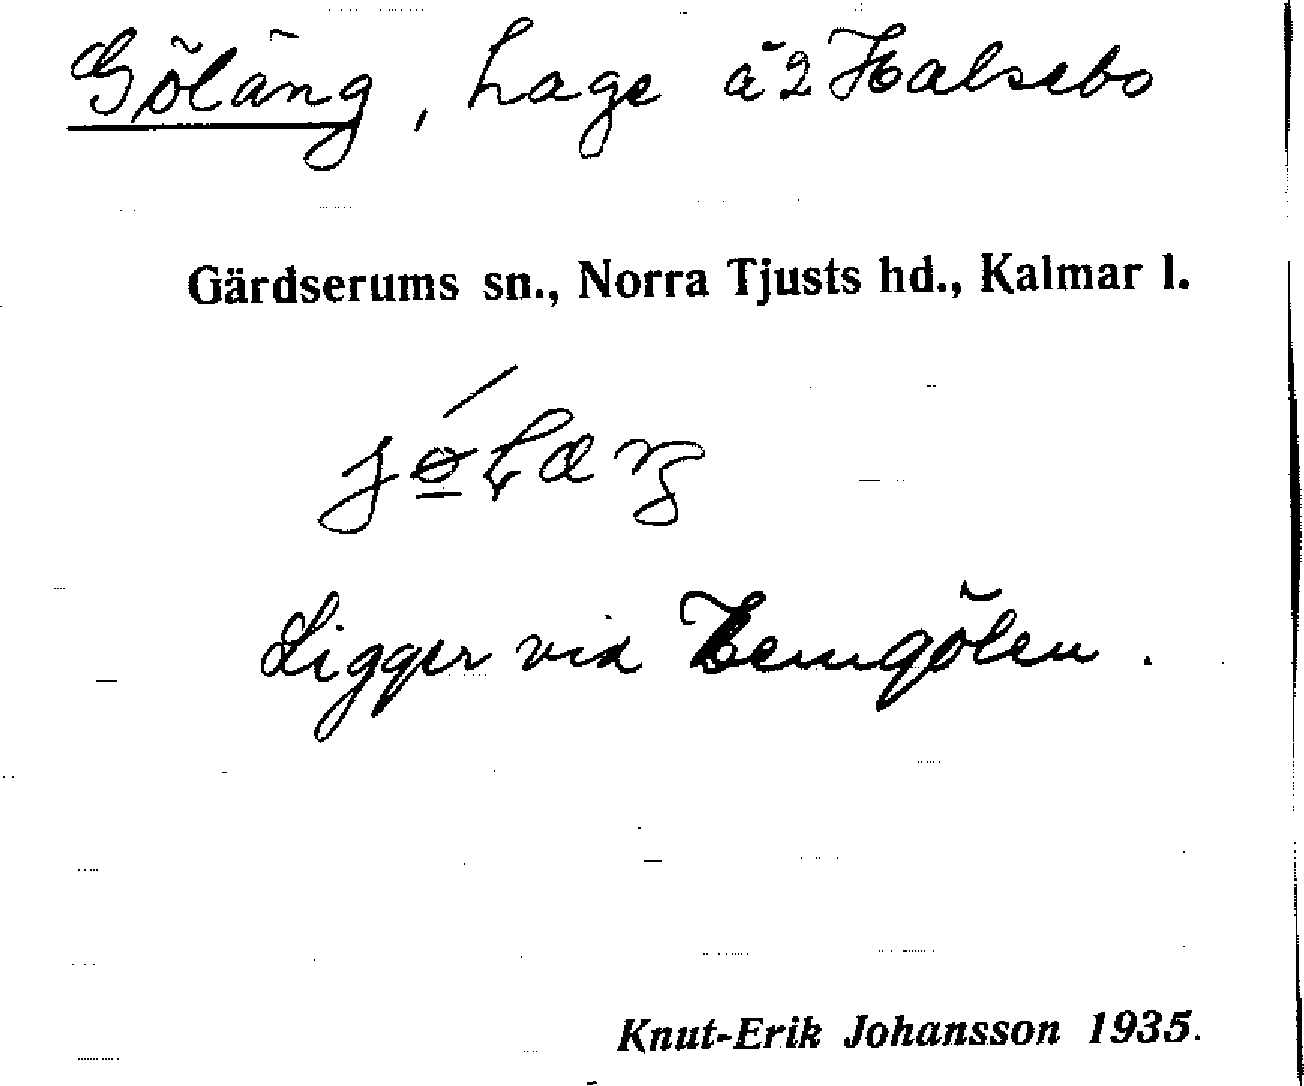 Göläng, hage å 2 Halsebo
Gärdserums sn., Norra Tjusts hd., Kalmar l.
Ligger vid Bemgölen.
Knut-Erik Johansson 1935.